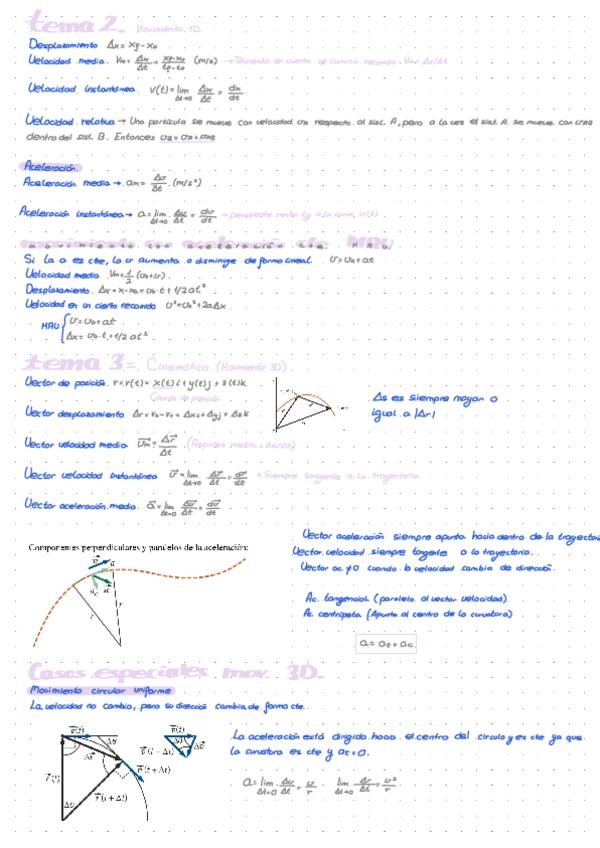 tema 2. Movimiento, 1D.
Desplazamiento Δx = xf - x0
Velocidad media. Vm = Δx/Δt = xf-x0/tf-t0 (m/s) → Teniendo en cuenta el camino recorrido. Vm = Δs/Δt
Velocidad instantánea V(t) = lim Δt→0 Δx/Δt = dx/dt
Velocidad relativa → Una partícula se mueve con velocidad respecto al sist. A, pero a la vez el sist. A. se mueve con
dentro del sist. B. Entonces
Aceleración
Aceleración media → am = Δv/Δt (m/s²)
Aceleración instantánea → a = lim Δt→0 Δv/Δt = dv/dt → pendiente recta tg a la curva v(t)
movimiento con aceleración cte: MRU
Si la a es cte, la v aumenta o disminuye de forma lineal. v = v0 + at
Velocidad media Vm = 1/2 (v0+v).
Desplazamiento. Δx = x-x0 = v0·t + 1/2 at².
Velocidad en un cierto recorrido v² = v0² + 2aΔx
MRU { v = v0 + at
Δx = v0·t + 1/2 at².
tema 3 =. Cinemática. (Movimiento 3D).
Vector de posición. r = r(t) = x(t)i + y(t)j + z(t)k
Vector desplazamiento Δr = r2 - r1 = Δxi + Δyj + Δzk
Δs es siempre mayor o
igual a |Δr|
Vector velocidad media vm = Δr/Δt (Rapidez media = Δs/Δt)
Vector velocidad instantánea v = lim Δt→0 Δr/Δt = dr/dt * Siempre tangente a la trayectoria.
Vector aceleración media. a = lim Δt→0 Δv/Δt = dv/dt
Componentes perpendiculares y paralelos de la aceleración:
Vector aceleración siempre apunta hacia dentro de la trayectoria
Vector velocidad siempre tangente a la trayectoria.
Vector ac ≠ 0 cuando la velocidad cambia de dirección.
Ac. tangencial (paralela al vector velocidad)
Ac. centrípeta (Apunta al centro de la curvatura)
a = at + ac
Casos especiales mov. 3D.
Movimiento circular uniforme
La velocidad no cambia, pero su dirección cambia de forma cte.
La aceleración está dirigida hacia el centro del circulo y es cte ya que
la curvatura es cte y at = 0.